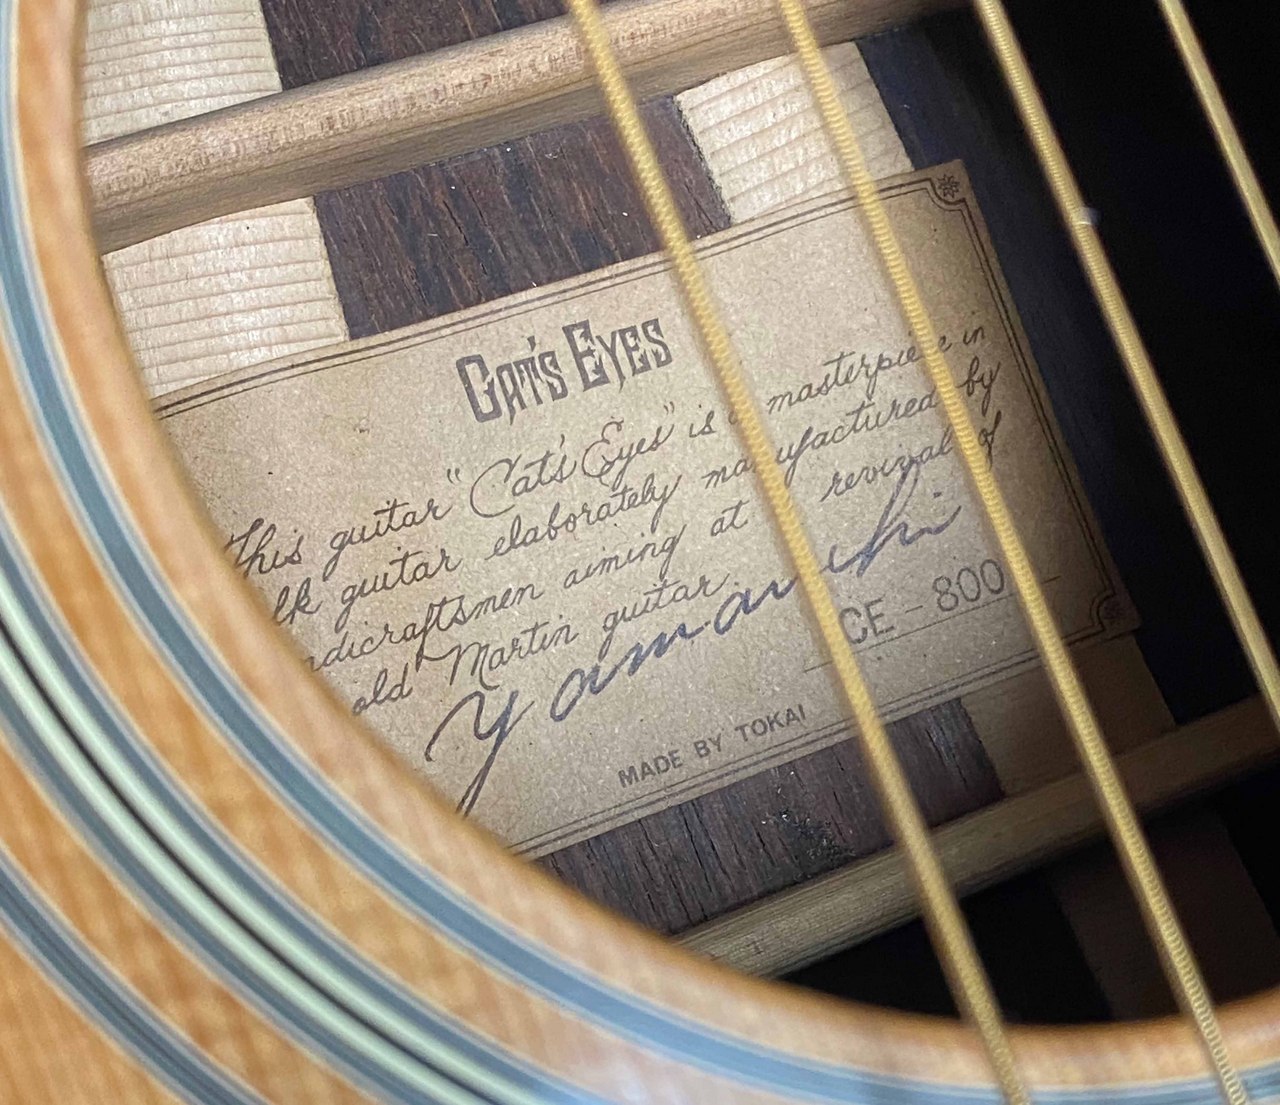 CAT'S EYES
This guitar "Cat's Eyes" is a masterpiece in
lk guitar elaborately manufactured by
ndicraftsmen aiming at revival of
old Martin guitar.
Yamauchi
CE-800
MADE BY TOKAI